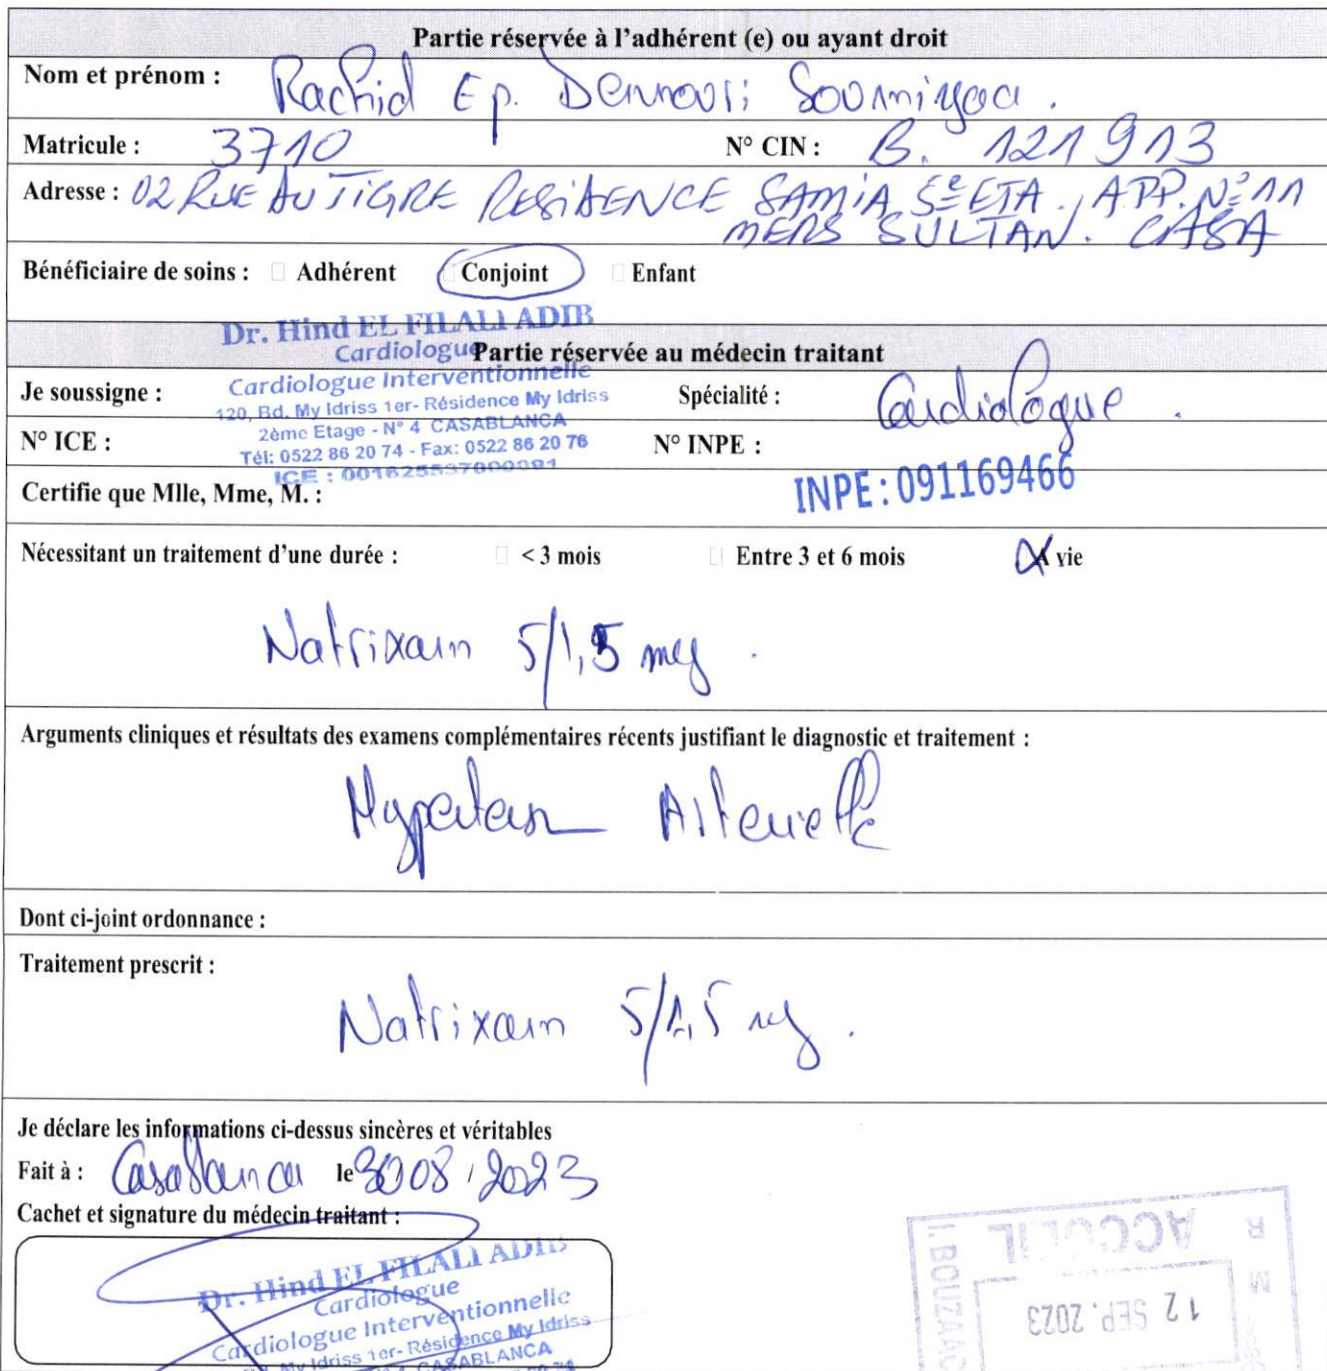 Partie réservée à l'adhérent (e) ou ayant droit
Nom et prénom : Rachid Ep. Dennouri Soumiyaa .
Matricule : 3710 N° CIN : B. 121913
Adresse : 02 RUE DU TIGRE RESIDENCE SAMIA 5E ETA., APP. N° 11
MERS SULTAN. CASA
Bénéficiaire de soins : Adhérent Conjoint Enfant
Dr. Hind EL FILALI ADIB
Cardiologue
Partie réservée au médecin traitant
Cardiologue Interventionnelle
Je soussigne : Spécialité : Cardiologue .
120, Bd. My Idriss 1er- Résidence My Idriss
2ème Etage - N° 4 CASABLANCA
N° ICE : N° INPE :
Tél: 0522 86 20 74 - Fax: 0522 86 20 76
ICE :
INPE : 091169466
Certifie que Mlle, Mme, M. :
Nécessitant un traitement d'une durée : < 3 mois Entre 3 et 6 mois A vie
Natrixam 5/1,5 mg .
Arguments cliniques et résultats des examens complémentaires récents justifiant le diagnostic et traitement :
Hypertension Artérielle
Dont ci-joint ordonnance :
Traitement prescrit :
Natrixam 5/1,5 mg .
Je déclare les informations ci-dessus sincères et véritables
Fait à : Casablanca le 30 08 / 2023
Cachet et signature du médecin traitant :
Dr. Hind EL FILALI ADIB
Cardiologue
Cardiologue Interventionnelle
My Idriss 1er- Résidence My Idriss
CASABLANCA
ACCUEIL
12 SEP. 2023